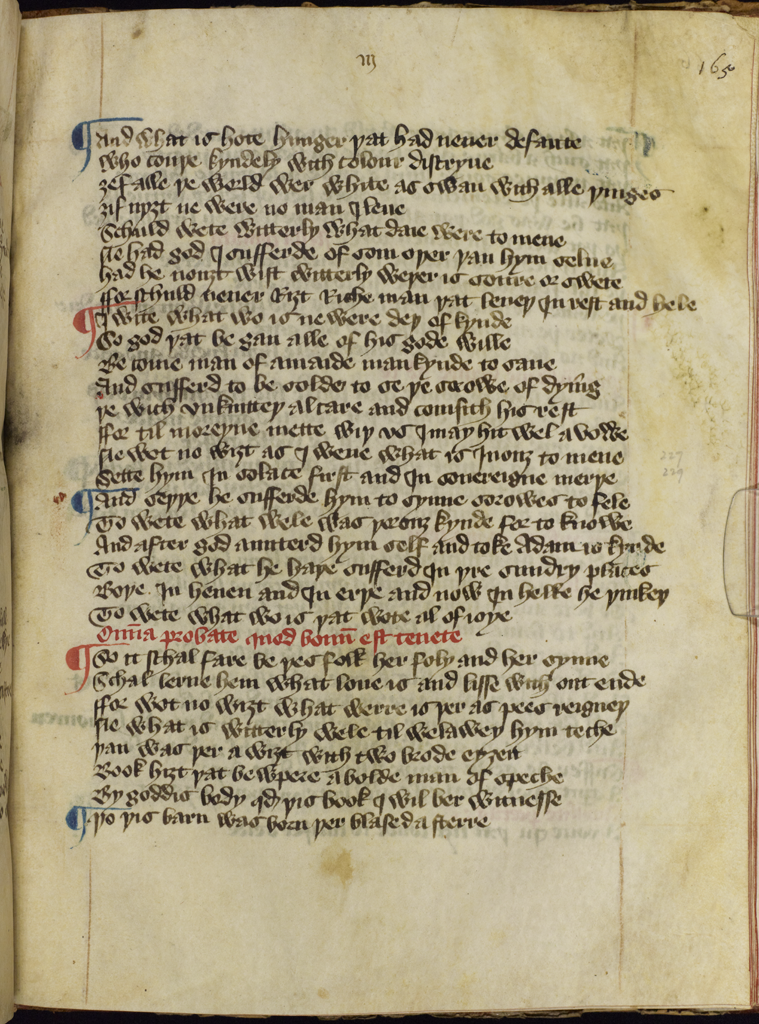 m
165
And what is hote hunger þat had neuer defaute
Who couþe kyndely with colour discryue
ȝef alle þe world wer white as swan with alle þinges
ȝif nyȝt ne were no man I leue
Schuld wete witterly what daie were to mene
Ne had god I sufferde of som oþer þan hym selue
had he nouȝt wist witterly weþer is soure or swete
ffor schuld neuer Riȝt Riche man þat leueþ In rest and hele
I wite what wo is ne were deþ of kynde
So god þat be gan alle of his gode wille
Be come man of a maide mankynde to saue
And sufferd to be solde to se þe sorowe of dying
þe wich vnknitteþ al care and comsith his rest
ffor til moreyne mette wiþ vs I may hit wel a vowe
Ne wot no wiȝt as I wene what is Inouȝ to mene
Sette hym In solace first and In souereigne merþe
And seþþe he sufferde hym to synne sorowes to fele
To wete what wele was þerouȝ kynde for to knowe
And after god auntterd hym self and toke Adam is kynde
To wete what he haþe sufferd In þre sundry places
Boþe In heuen and In erþe and now In helle he þinkeþ
To wete what wo is þat wote al of ioye
Omnia probate quod bonum est tenete
So it schal fare be þes folk her foly and her synne
Schal lerne hem what loue is and lisse with out ende
ffor wot no wiȝt what werre is þer as pees reigneþ
Ne what is witterly wele til welaweþ hym teche
þan was þer a wiȝt with two brode eyȝen
Book hiȝt þat be wpere a bolde man of speche
By goddis body qd þis book I wil ber witnesse
þo þis barn was born þer blased a sterre